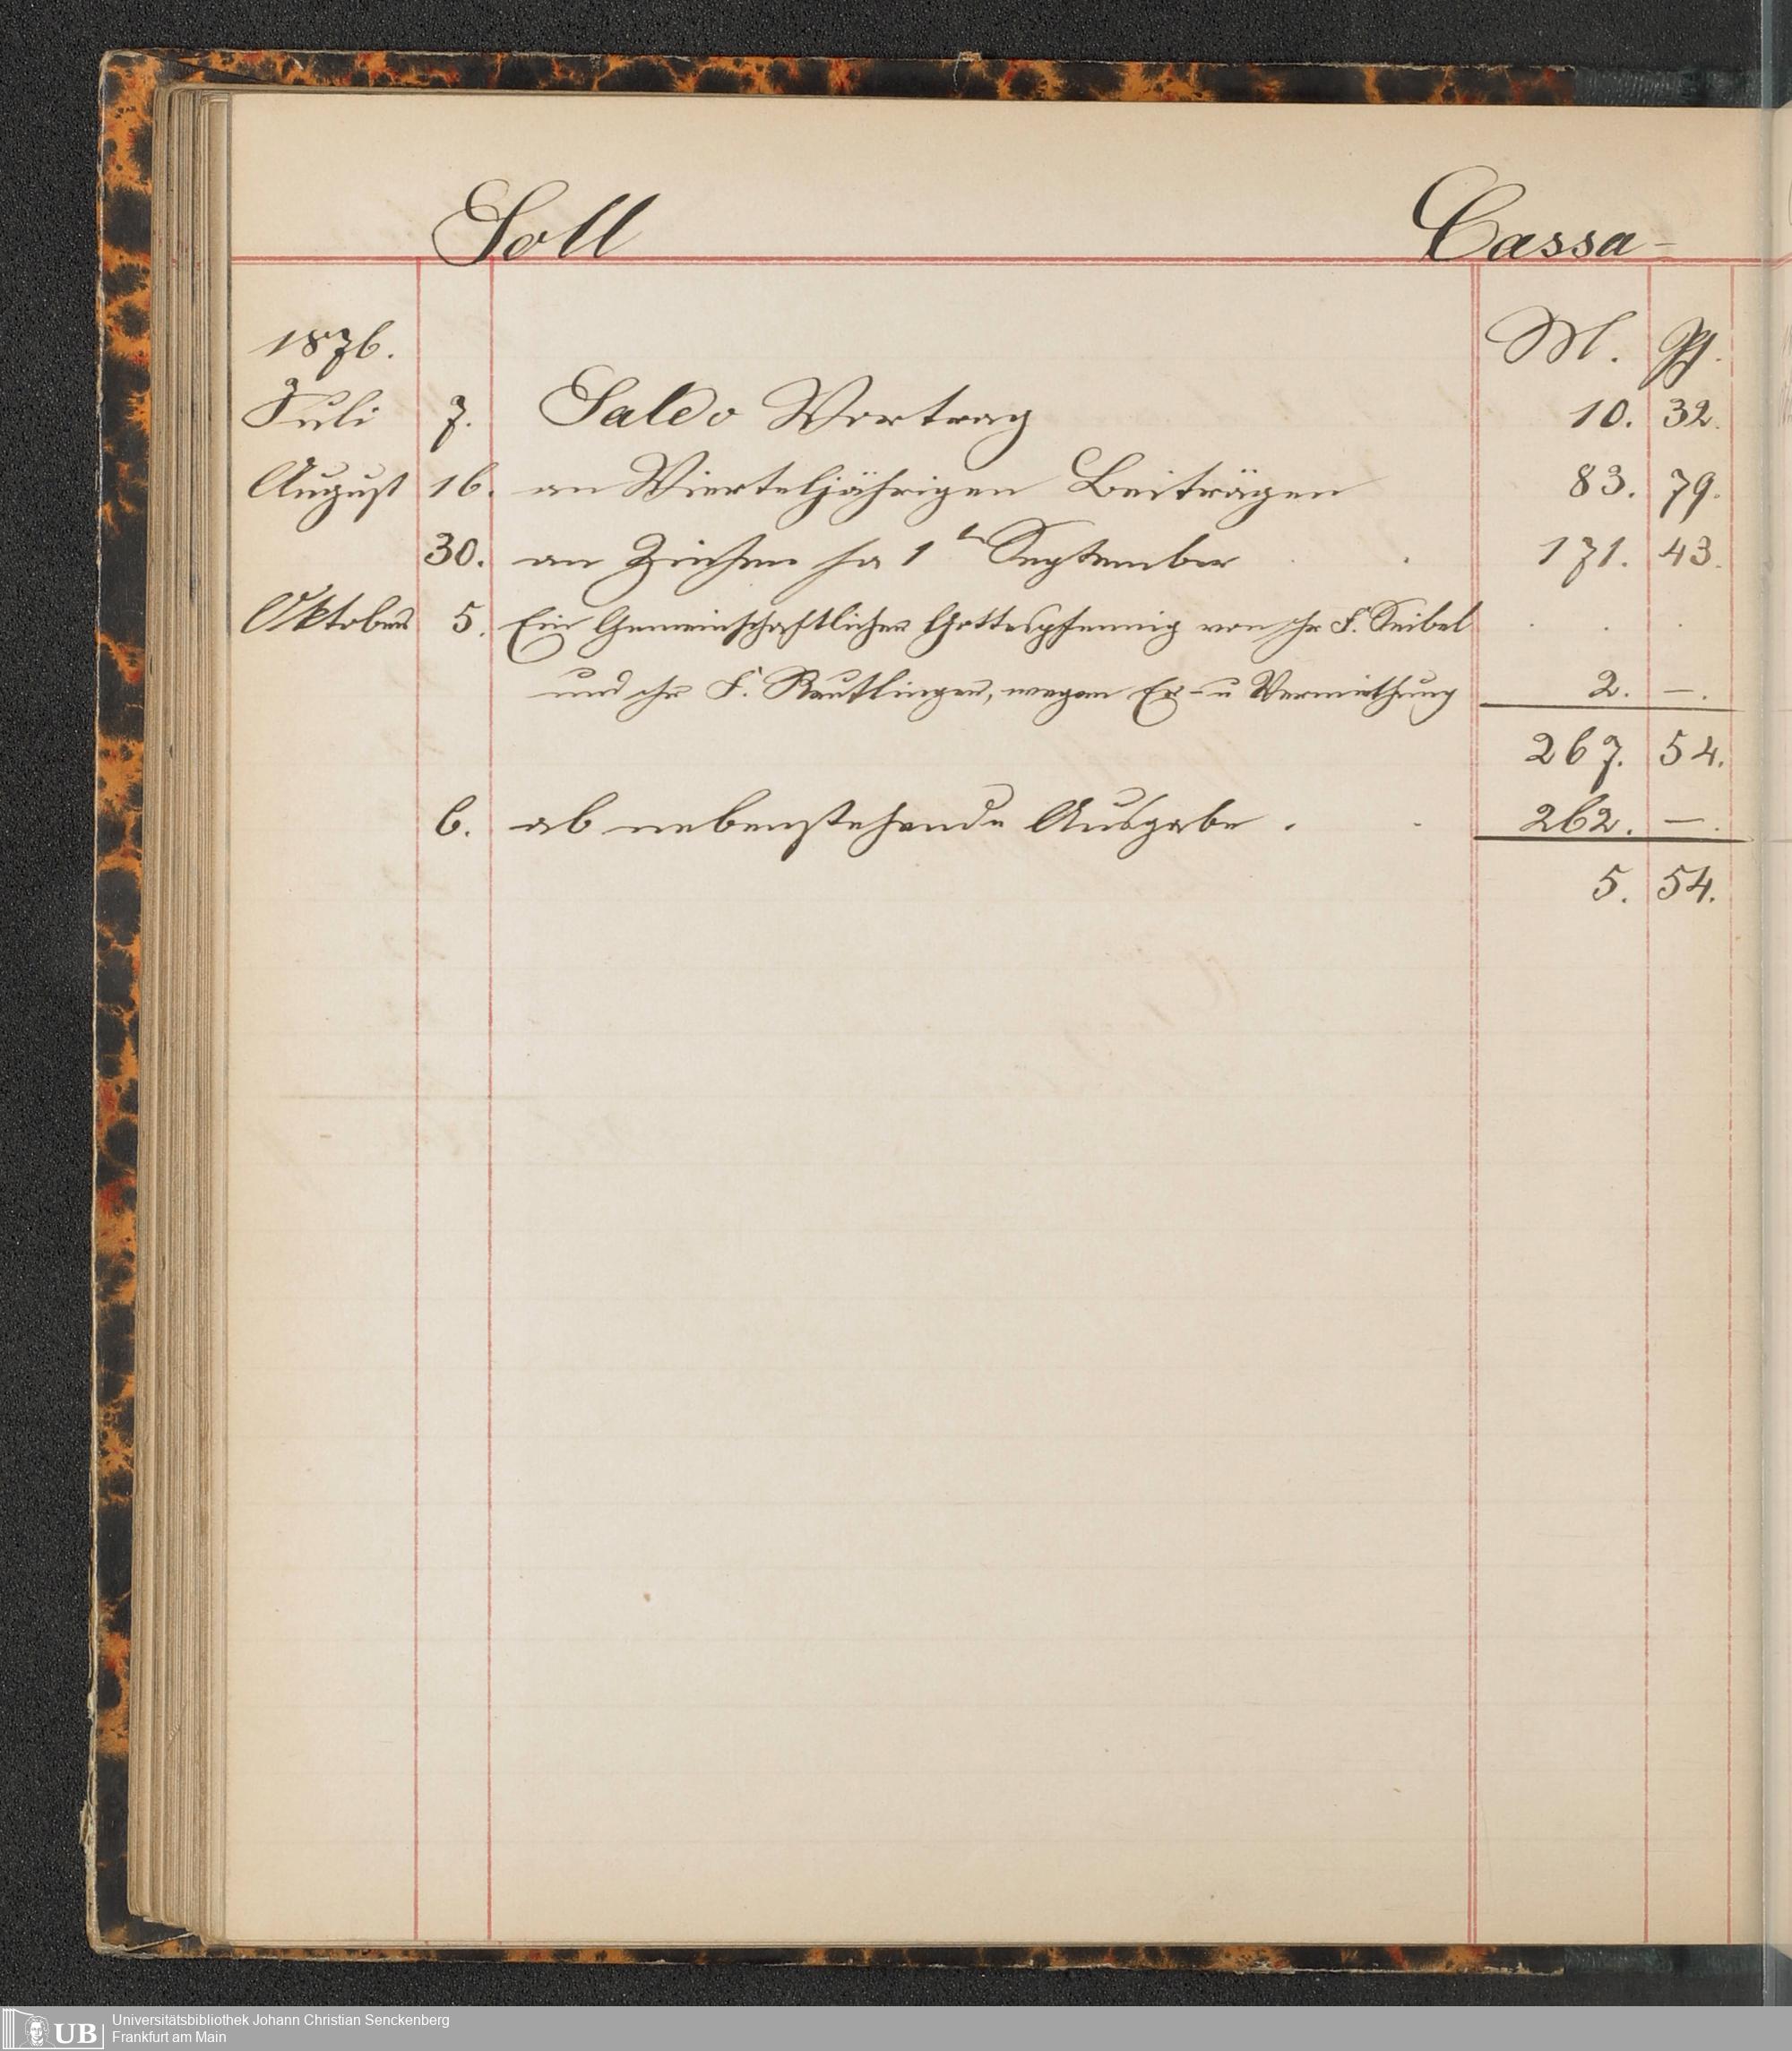 Soll Cassa-
1876. M. Pf.
Juli 7. Saldo Vortrag 10. 32.
August 16. an Vierteljährigen Beiträgen 83. 79.
30. an Zinsen pa 1 September 171. 43.
Oktober 5. Ein Gemeinschaftlicher Gottespfennig von Hr F. Seibel
und Hr F. Reutlinger, wegen Er- u Vermiethung 2. —.
267. 54.
6. ab nebenstehende Ausgabe . 262. —.
5. 54.
UB Universitätsbibliothek Johann Christian Senckenberg
Frankfurt am Main